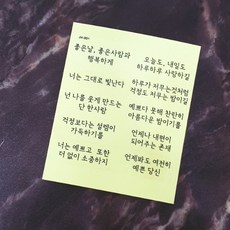 좋은날, 좋은사람과
행복하게
너는 그대로 빛난다
넌 나를 웃게 만드는
단 한사람
걱정보다는 설렘이
가득하기를
너는 예쁘고 또한
더 없이 소중하지
오늘도, 내일도
하루하루 사랑하길
하루가 저무는것처럼
걱정도 저무는 밤이길
예쁘다 못해 찬란히
아름다운 밤이기를
언제나 내편이
되어주는 존재
언제봐도 여전히
예쁜 당신